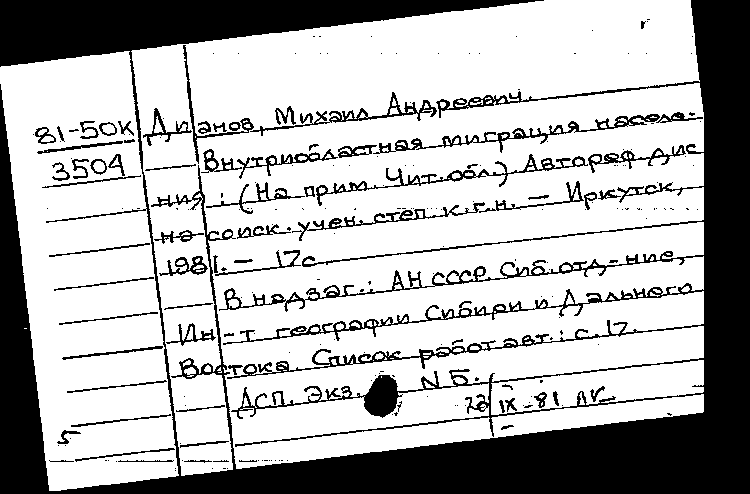 81-50К
3504
Дианов, Михаил Андреевич.
Внутриобластная миграция населе-
ния : (На прим. Чит. обл.) Автореф. дис
на соиск. учен. степ. к.г.н. — Иркутск,
1981. — 17с.
В надзаг.: АН СССР. Сиб. отд-ние,
Ин-т географии Сибири и Дального
Востока. Список работ авт.: с. 17.
ДСП. Экз. N 5.
IX-81
5